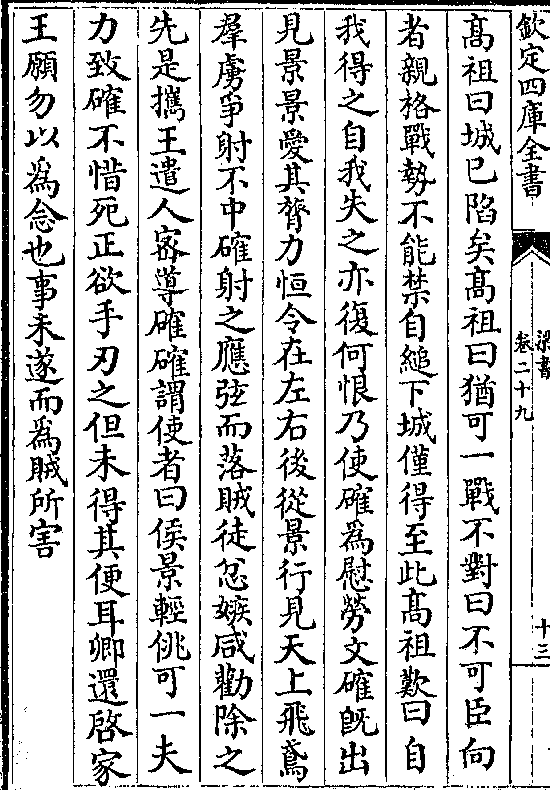 欽定四庫全書
梁書
卷二十九
十三
髙祖曰城已陷矣髙祖曰猶可一戰不對曰不可臣向
者親格戰勢不能禁自縋下城僅得至此髙祖歎曰自
我得之自我失之亦復何恨乃使確為慰勞文確旣出
見景景愛其膂力恒令在左右後從景行見天上飛鳶
羣虜爭射不中確射之應弦而落賊徒忿嫉咸勸除之
先是攜王遣人宻導確確謂使者曰侯景輕佻可一夫
力致確不惜死正欲手刃之但未得其便耳卿還啓家
王願勿以為念也事未遂而為賊所害